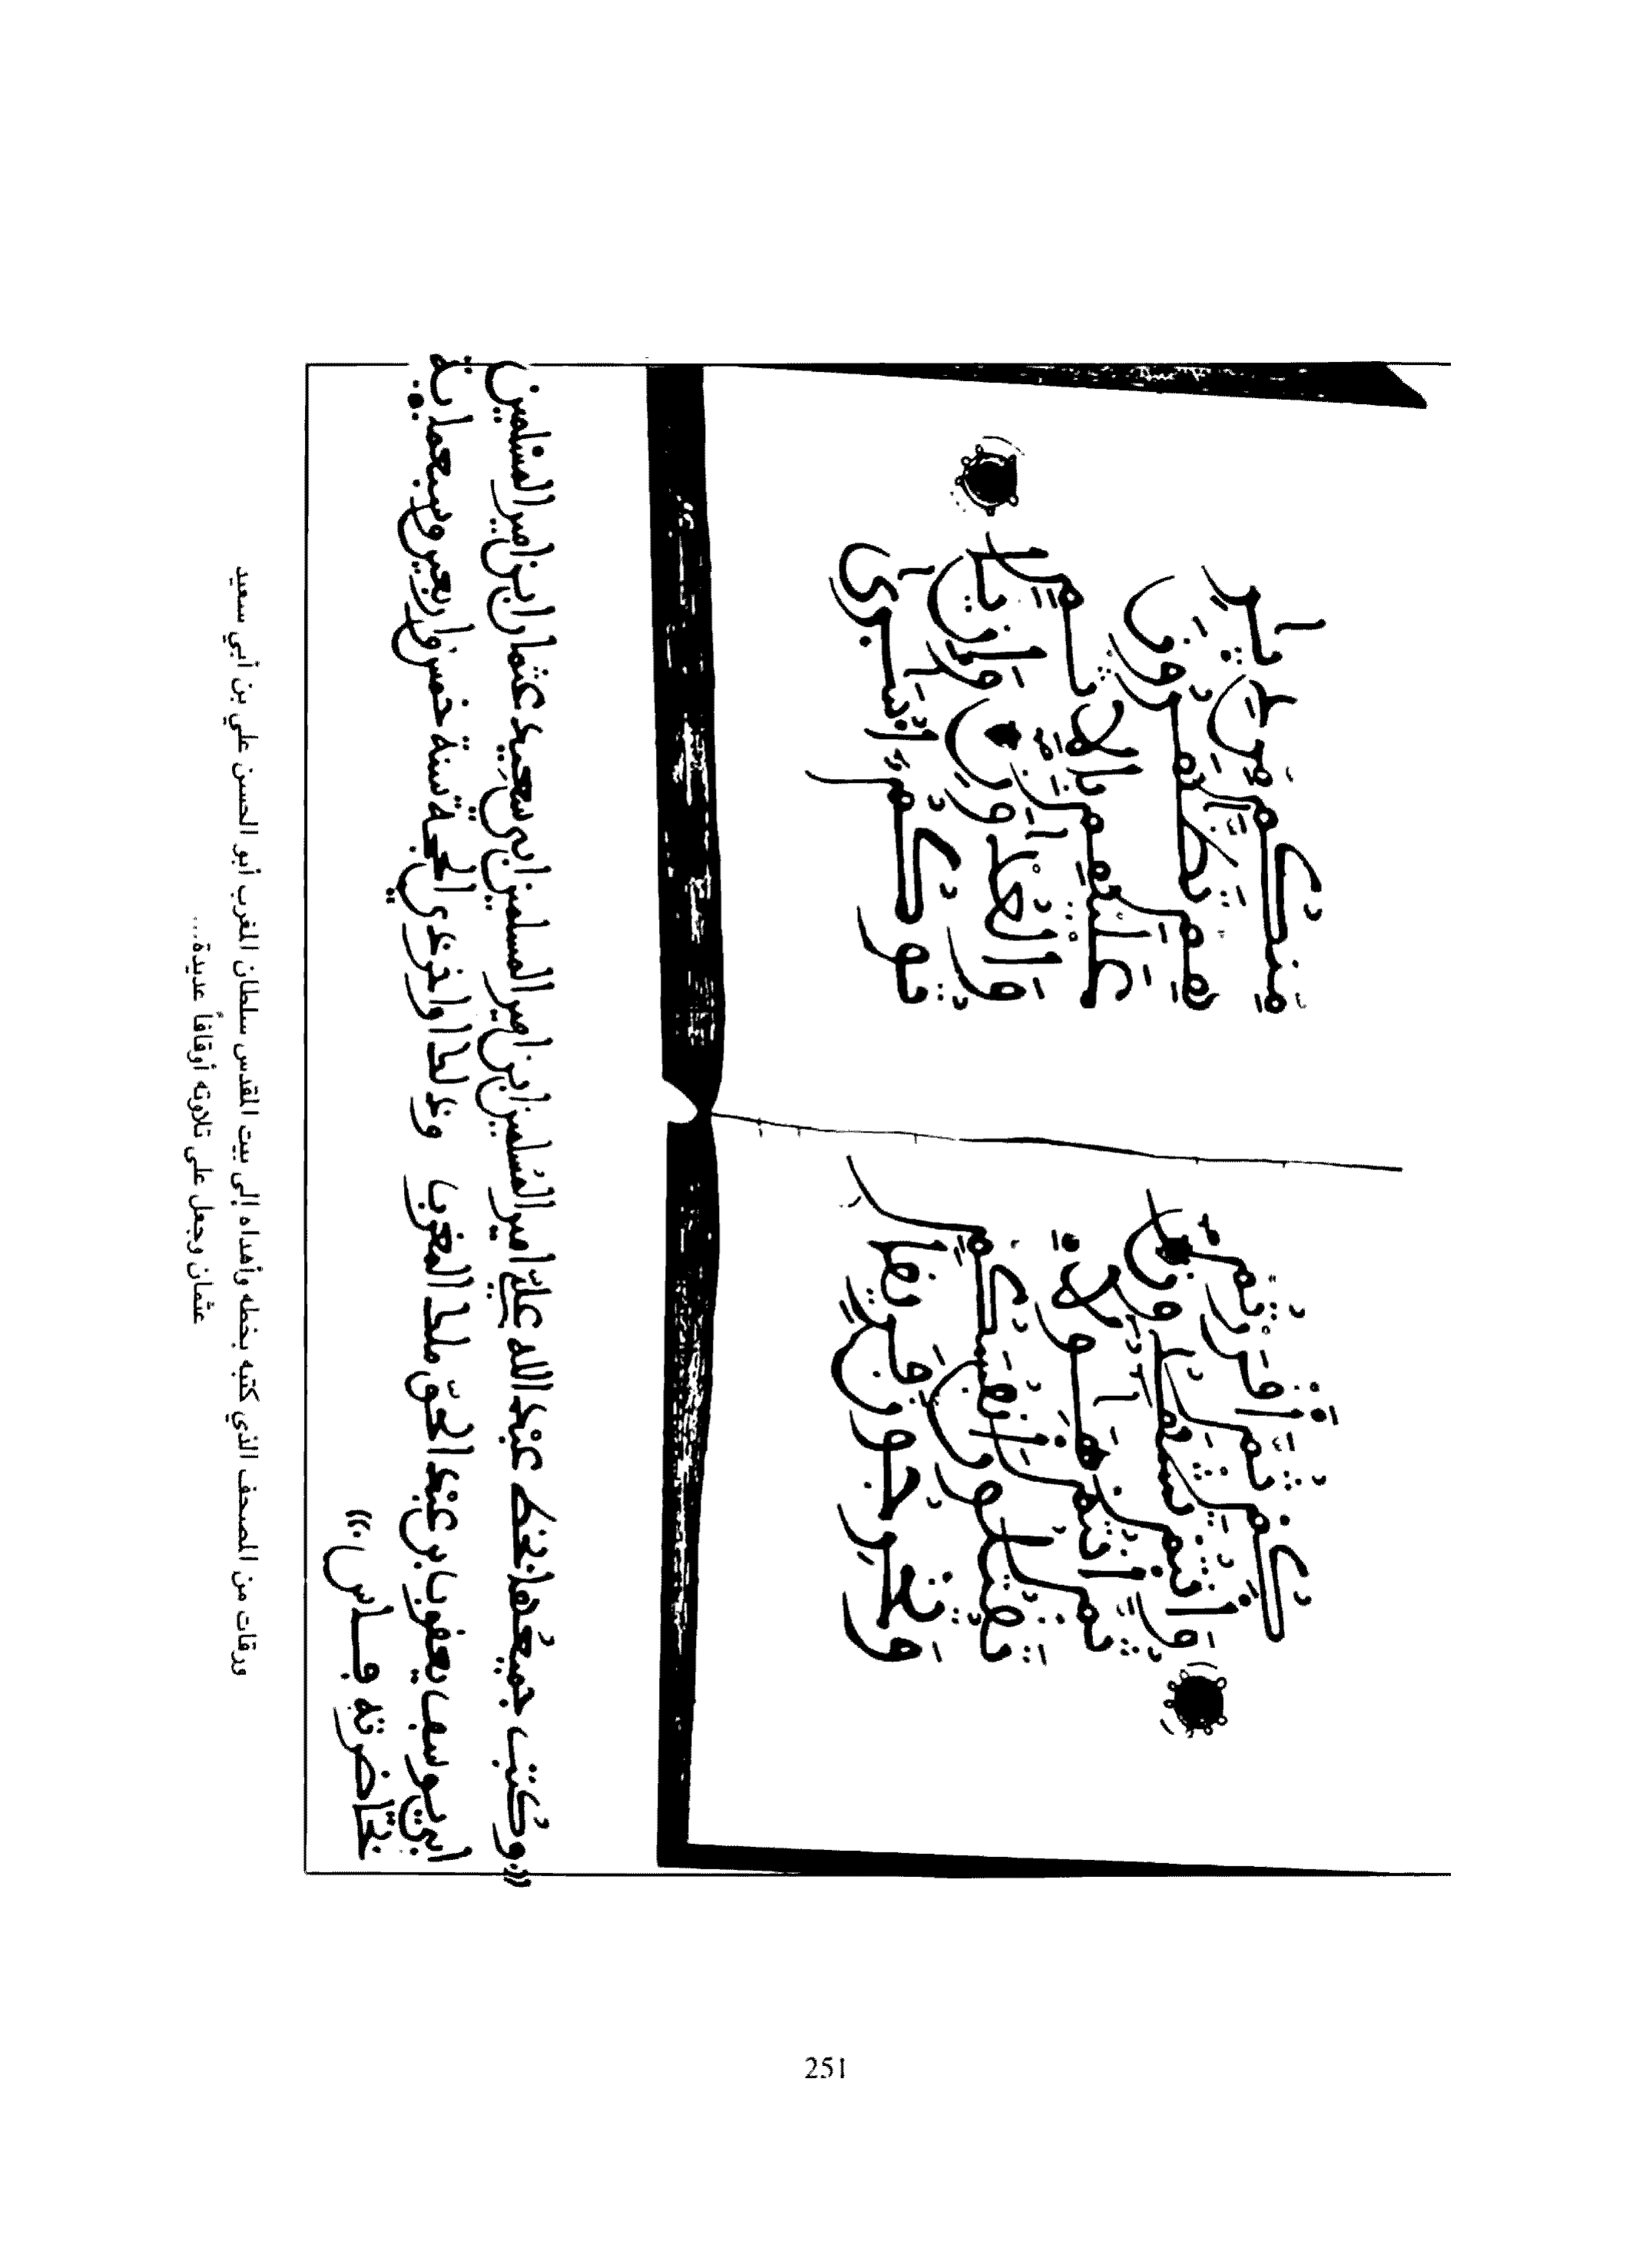 كُمْ ثُمَّ أَقْرَرْتُمْ
وَأَنتُمْ تَشْهَدُونَ
ثُمَّ أَنتُمْ هَؤُلَاءِ
تَقْتُلُونَ أَنفُسَكُمْ
وَتُخْرِجُونَ فَرِيقًا
مِّنكُم مِّن دِيَـٰرِ
هِمْ تَظَّـٰهَرُونَ
عَلَيْهِم بِالْإِثْمِ
وَالْعُدْوَٰنِ وَإِن يَا
تُوكُمْ أُسَـٰرَىٰ
«وكتب جميعها بخطه عبد الله علي امير المسلمين ابن امير المسلمين ابي سعيد عثمان ابن امير المسلمين
ابي يوسف يعقوب بن عبد الحق ملك المغرب وذلك اواخر ذي الحجة سنة خمس واربعين وسبعمائة
بحاضرته فاس.»
ورقات من المصحف الذي كتبه بخطه وأهداه إلى بيت المقدس سلطان المغرب أبو الحسن علي بن أبي سعيد
عثمان وجعل على تلاوته أوقافاً عديدة...
251